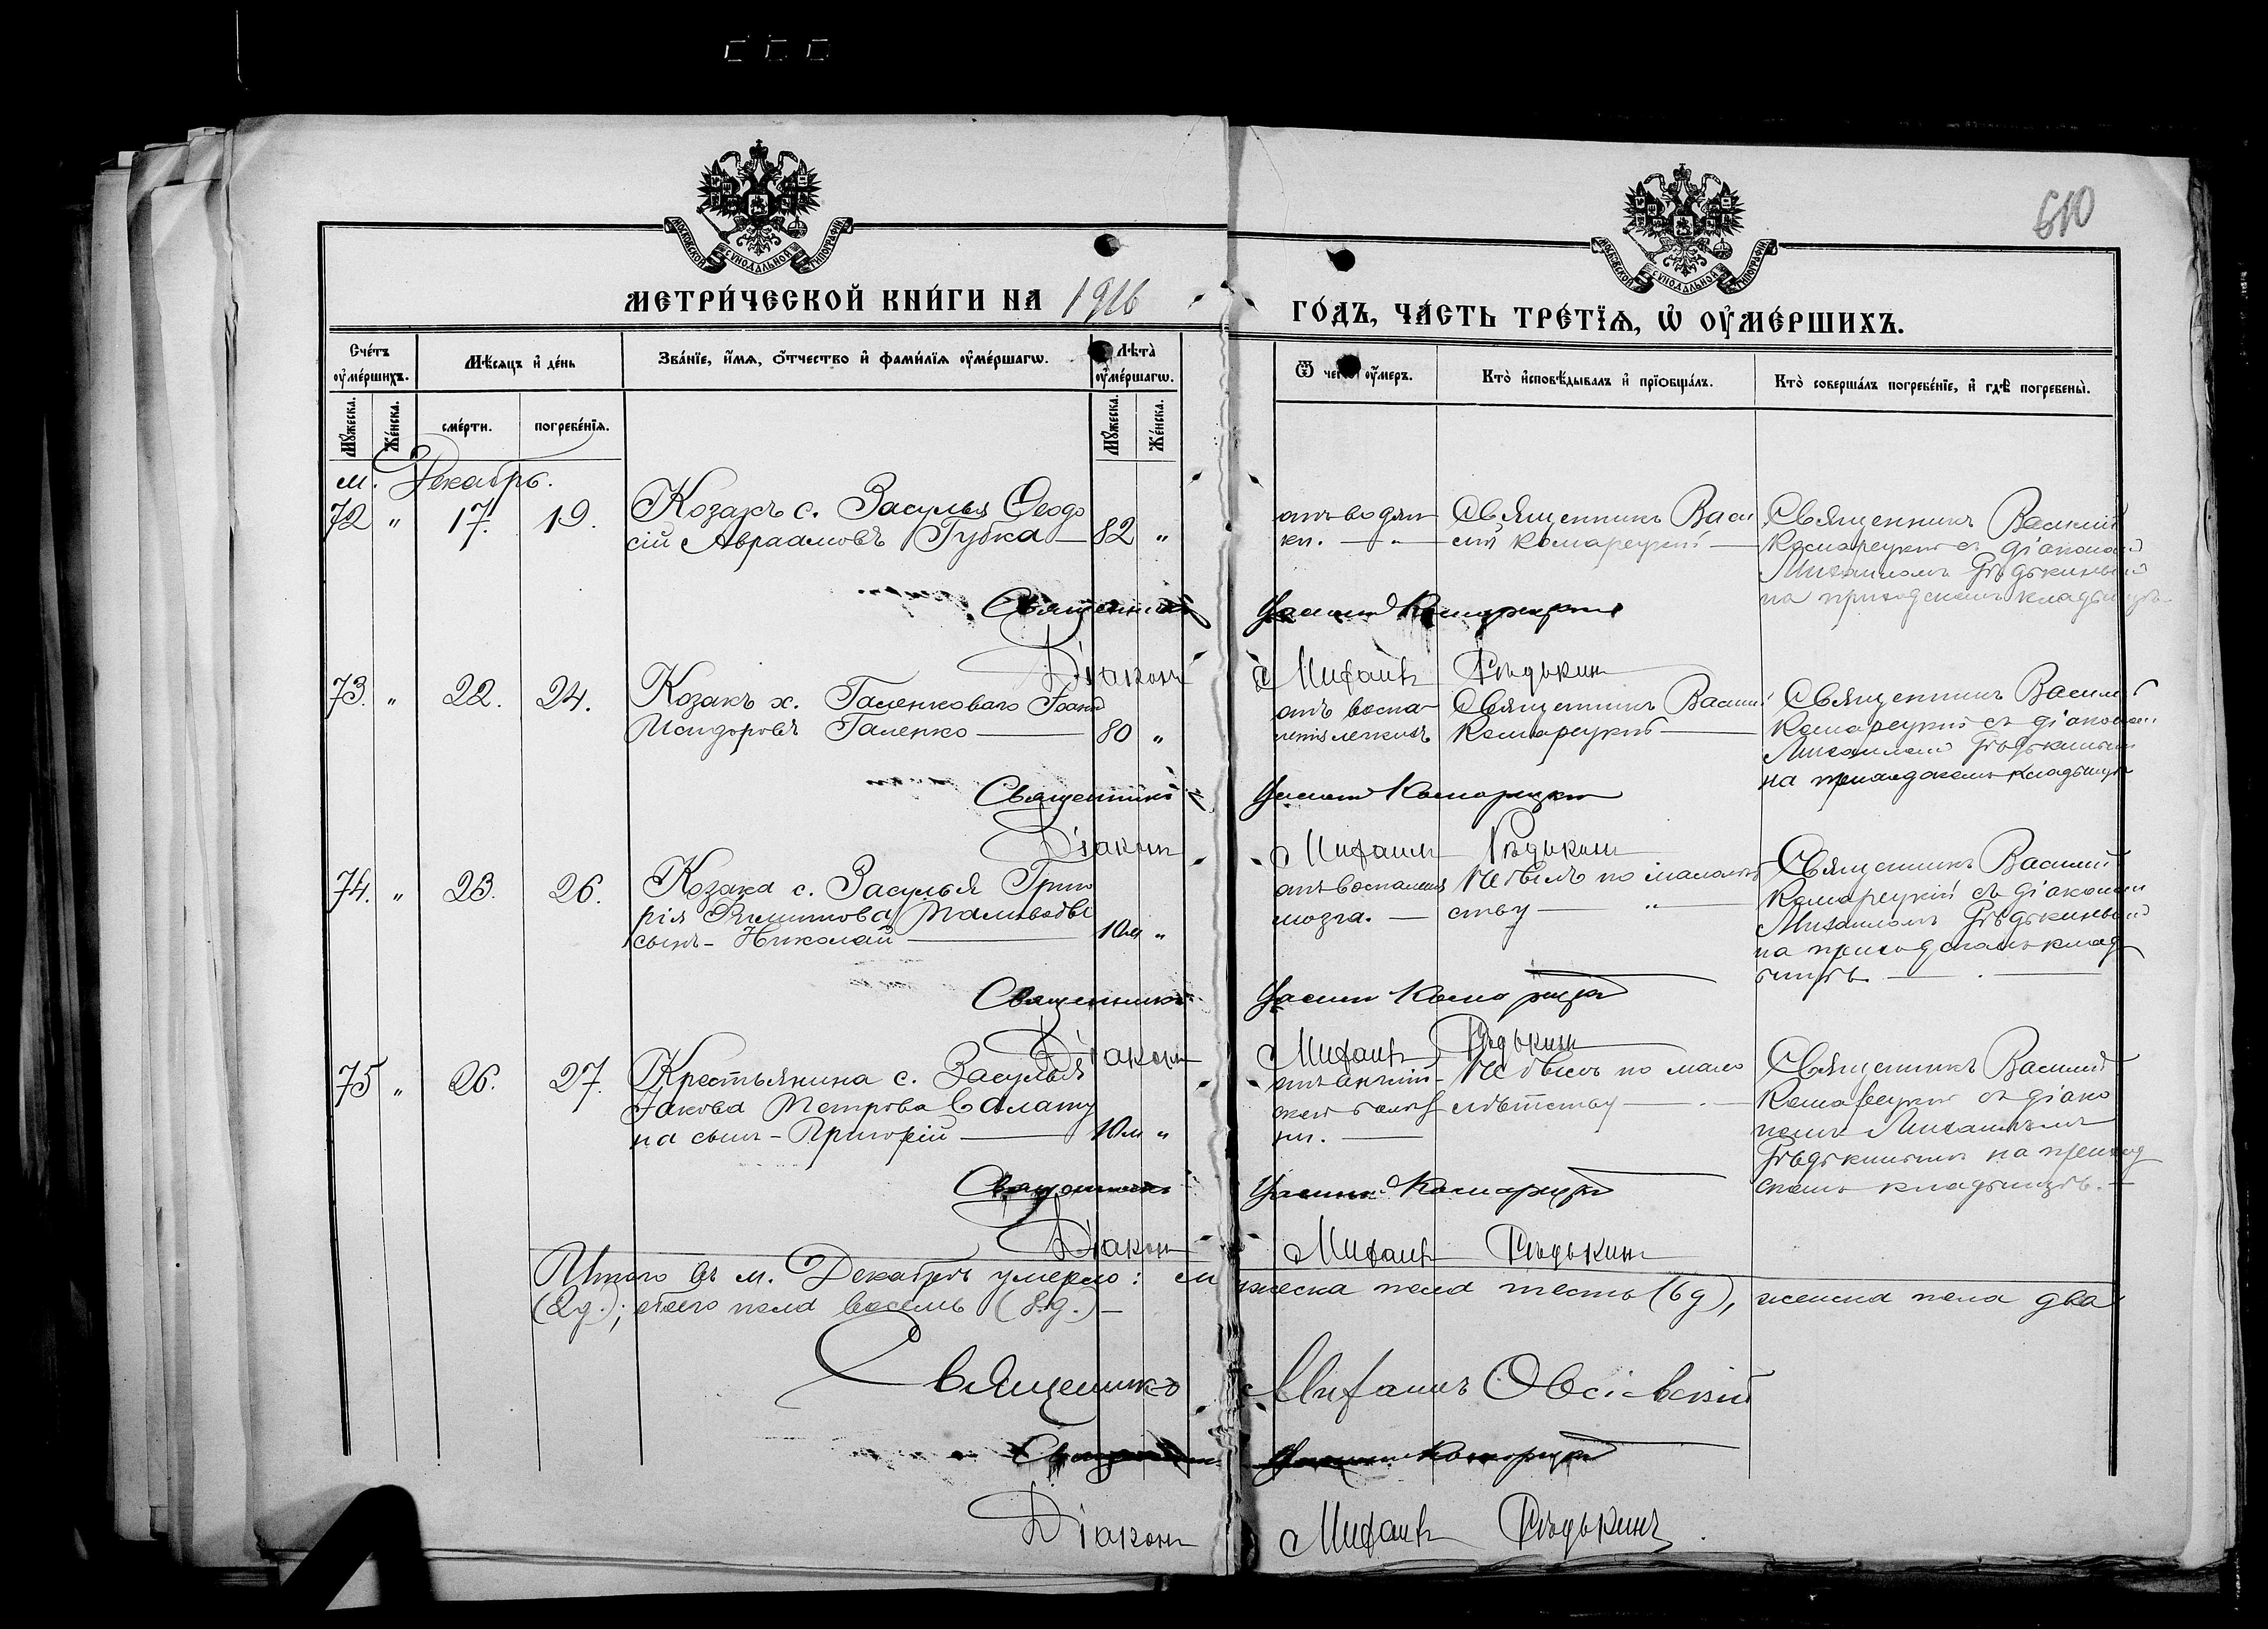 610
МОСКОВСКОЙ СѴНОДАЛЬНОЙ ТИПОГРАФІИ
МОСКОВСКОЙ СѴНОДАЛЬНОЙ ТИПОГРАФІИ
МЕТРИ́ЧЕСКОЙ КНИ́ГИ НА 1916
ГО́ДЪ, ЧА́СТЬ ТРЕ́ТЇѦ, Ѡ҆ ОУ҆МЕ́РШИХЪ.
Сче́тъ оу҆ме́ршихъ.
Мѣ́сяцъ и҆ де́нь
Зва́нїе, и҆́мя, ѻ҆́тчество и҆ фами́лїя оу҆ме́ршагѡ.
Лѣта̀ оу҆ме́ршагѡ.
Ѿ чегѡ̀ оу҆́меръ.
Кто̀ и҆сповѣ́дывалъ и҆ прїобща́лъ.
Кто̀ соверша́лъ погребе́нїе, и҆ гдѣ̀ погребены̀.
Му́жеска.
Же́нска.
сме́рти.
погребе́нїя.
Му́жеска.
Же́нска.
м. Декабрь.
72 " 17. 19. Козакъ с. Засулья Ѳеодо
сій Авраамовъ Губка — 82 "
отъ водян
ки. — " —
Священникъ Васи
лій Комарецкій —
Священникъ Василій
Комарецкій съ діакономъ
Михаиломъ Рѣдькинымъ
на приходскомъ кладбищѣ
Священникъ Василій Комарецкій
Діаконъ Михаилъ Рѣдькинъ
73. " 22. 24. Козакъ х. Галенковаго Іоаннъ
Исидоровъ Галенко — 80 "
отъ воспа-
ленія легкихъ
Священникъ Василій
Комарецкій —
Священникъ Василій
Комарецкій съ діакономъ
Михаиломъ Рѣдькинымъ
на приходскомъ кладбищѣ
Священникъ Василій Комарецкій
Діаконъ Михаилъ Рѣдькинъ
74. " 23. 26. Козака с. Засулья Григо
рія
сынъ - Николай — 10м "
отъ воспаленія
мозга. —
Не былъ по малолѣт
ству — " —
Священникъ Василій
Комарецкій съ діакономъ
Михаиломъ Рѣдькинымъ
на приходскомъ клад
бищѣ. — . —
Священникъ Василій Комарецкій
Діаконъ Михаилъ Рѣдькинъ
75 " 26. 27. Крестьянина с. Засулья
Іакова Петрова Салату
на сынъ - Григорій — 10м "
отъ англій-
ской болѣз
ни. —
Не былъ по мало
лѣтству — . —
Священникъ Василій
Комарецкій съ діако
номъ Михаиломъ
Рѣдькинымъ на приход
скомъ кладбищѣ. —
Священникъ Василій Комарецкій
Діаконъ Михаилъ Рѣдькинъ
Итого въ м. Декабрѣ умерло: мужеска пола шесть (6 д), женска пола два
(2 д.); обоего пола восемь (8 д.) —
Священникъ Михаилъ Овсіевскій
Священникъ Василій Комарецкій
Діаконъ Михаилъ Рѣдькинъ.